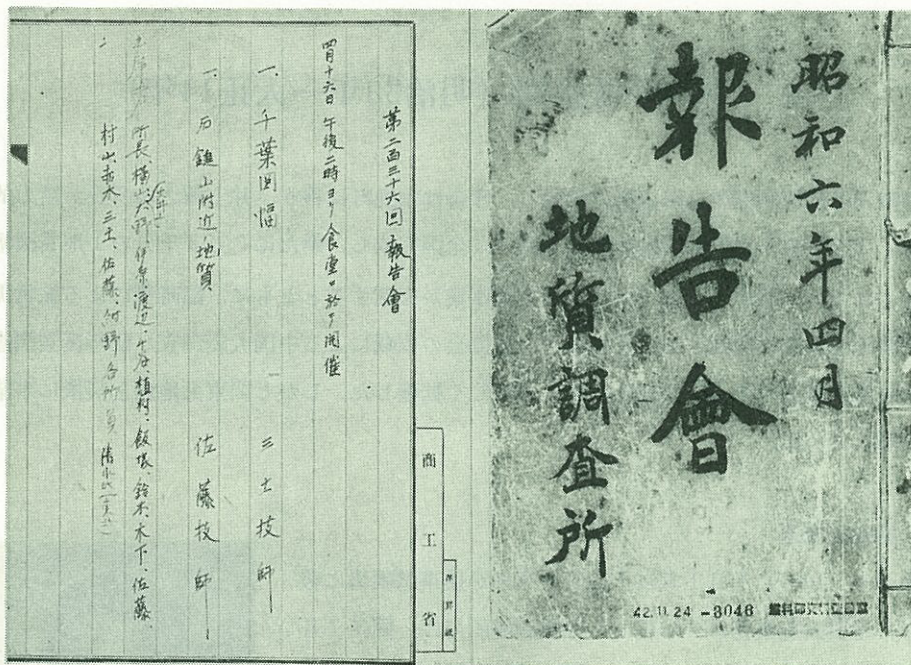 昭和六年四月
報告會
地質調査所
42.11.24 -3046
第二百三十六回報告會
四月十六日午後二時ヨリ食堂ニ於テ開催
一、千葉図幅 三土技師
一、石鎚山附近ノ地質 佐藤技師
所長 横山、大野、伊原、渡辺、植村、飯塚、鈴木、木下、佐藤、
村山、三土、佐藤、各所員
商工省